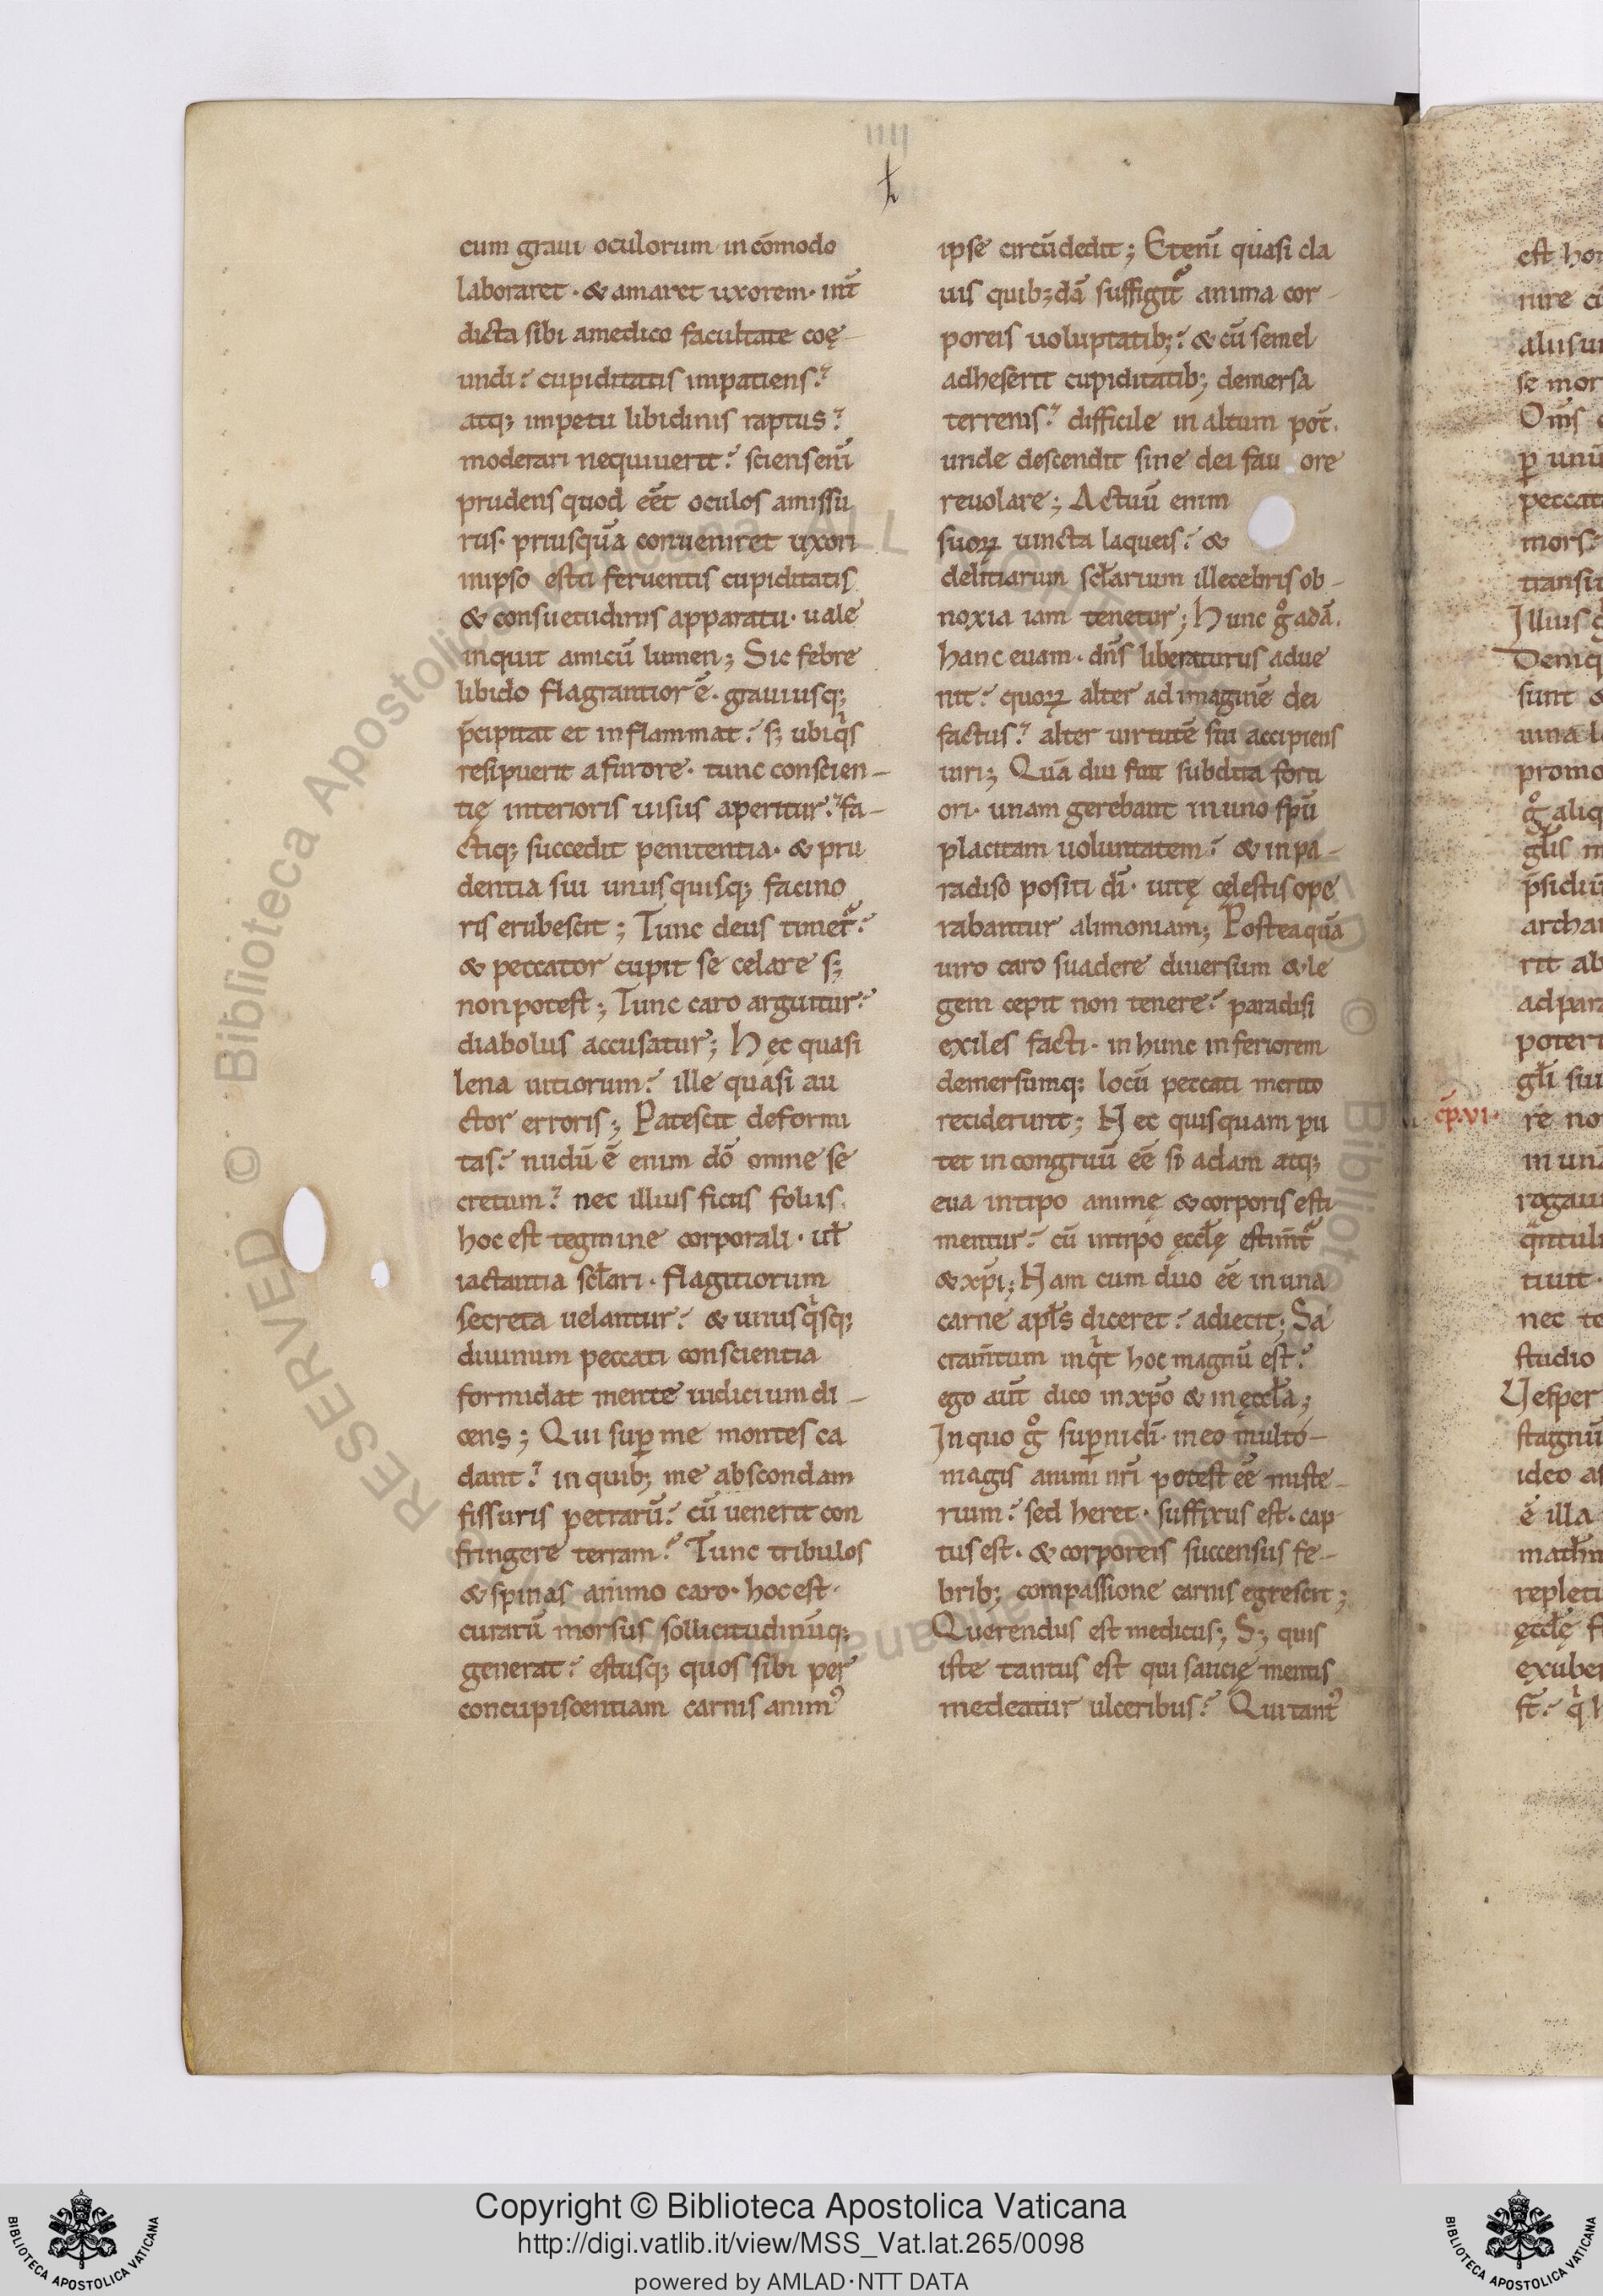 cum graui oculorum incōmodo
laboraret · & amaret uxorem · int̄
dicta sibi amedico facultate coę
undi? cupiditatis impatiens?
atq; impetu libidinis raptus?
moderari nequiuerit? sciensenī
prudens quod eēt oculos amissu
rus · priusquā conueniret uxori
inipso estu feruentis cupiditatis
& consuetudinis apparatu · uale
inquit amicū lumen; Sic febre
libido flagrantior ē · grauiusq;
p̄cipitat et inflammat? s; ubiq's
resipuerit a furore · tunc conscien-
tię interioris uisus aperitur? fa-
ctiq; succedit penitentia · & pru
dentia sui unusquisq; facino
ris erubescit; Tunc deus timet᷑?
& peccator cupit se celare s;
non potest; Tunc caro arguitur?
diabolus accusatur; Hęc quasi
lena uitiorum? ille quasi au
ctor erroris; Patescit deformi
tas? nudū ē enim dō omne se
cretum? nec illius ficus foliis
hoc est tegmine corporali · ut̄
iactantia scl̄ari · flagitiorum
secreta uelantur? & unusq'sq;
diuinum peccati conscientia
formidat mente iudicium di-
cens; Qui sup̄ me montes ca
dant? in quib; me abscondam
fissuris petrarū? cū uenerit con
fringere terram? Tunc tribulos
& spinas animo caro · hoc est ·
curarū morsus sollicitudinūq;
generat? estusq; quos sibi per
concupiscentiam carnis anim᾿
ipse circūdedit; Etenī quasi cla
uis quib;dā suffigit᷑ anima cor-
poreis uoluptatib;? & cū semel
adheserit cupiditatib; demersa
terrenis? difficile in altum pot̄.
unde descendit sine dei fau ore
reuolare; Actuū enim
suoꝝ uincta laqueis? &
delitiarum scl̄arium illecebris ob-
noxia iam tenetur; Hunc gͦ adā.
hanc euam · dn̄s liberaturus adue
nit? quoꝝ alter ad imaginē dei
factus? alter uirtutē sui accipiens
uiri; Quā diu fuit subdita forti
ori · unam gerebant in uno sp̄u
placitam uoluntatem? & in pa-
radiso positi dī · uitę cęlestis ope
rabantur alimoniam; Posteaquā
uiro caro suadere diuersum & le
gem cepit non tenere? paradisi
exiles facti · in hunc inferiorem
demersumq; locū peccati merito
reciderunt; Nec quisquam pu
tet incongruū eē si adam atq;
eua in tipo animę & corporis esti
mentur? cū in tipo ęccl̄ę estiment᷑
& xp̄i; Nam cum duo eē in una
carne apl̄s diceret? adiecit; Sa
cram̄tum inq't hoc magnū est?
ego aut̄ dico in xp̄o & in ęccl̄a;
In quo gͦ sup̄ni dī · in eo multo-
magis animi nr̄i potest eē miste-
rium? sed heret · suffixus est · cap
tus est · & corporeis succensus fe-
brib; compassione carnis egrescit;
Querendus est medicus; S; quis
iste tantus est qui saucię mentis
medeatur ulceribus? Qui tant᾿
cp̄.VI·
Copyright © Biblioteca Apostolica Vaticana
http://digi.vatlib.it/view/MSS_Vat.lat.265/0098
powered by AMLAD·NTT DATA
BIBLIOTECA APOSTOLICA VATICANA
BIBLIOTECA APOSTOLICA VATICANA